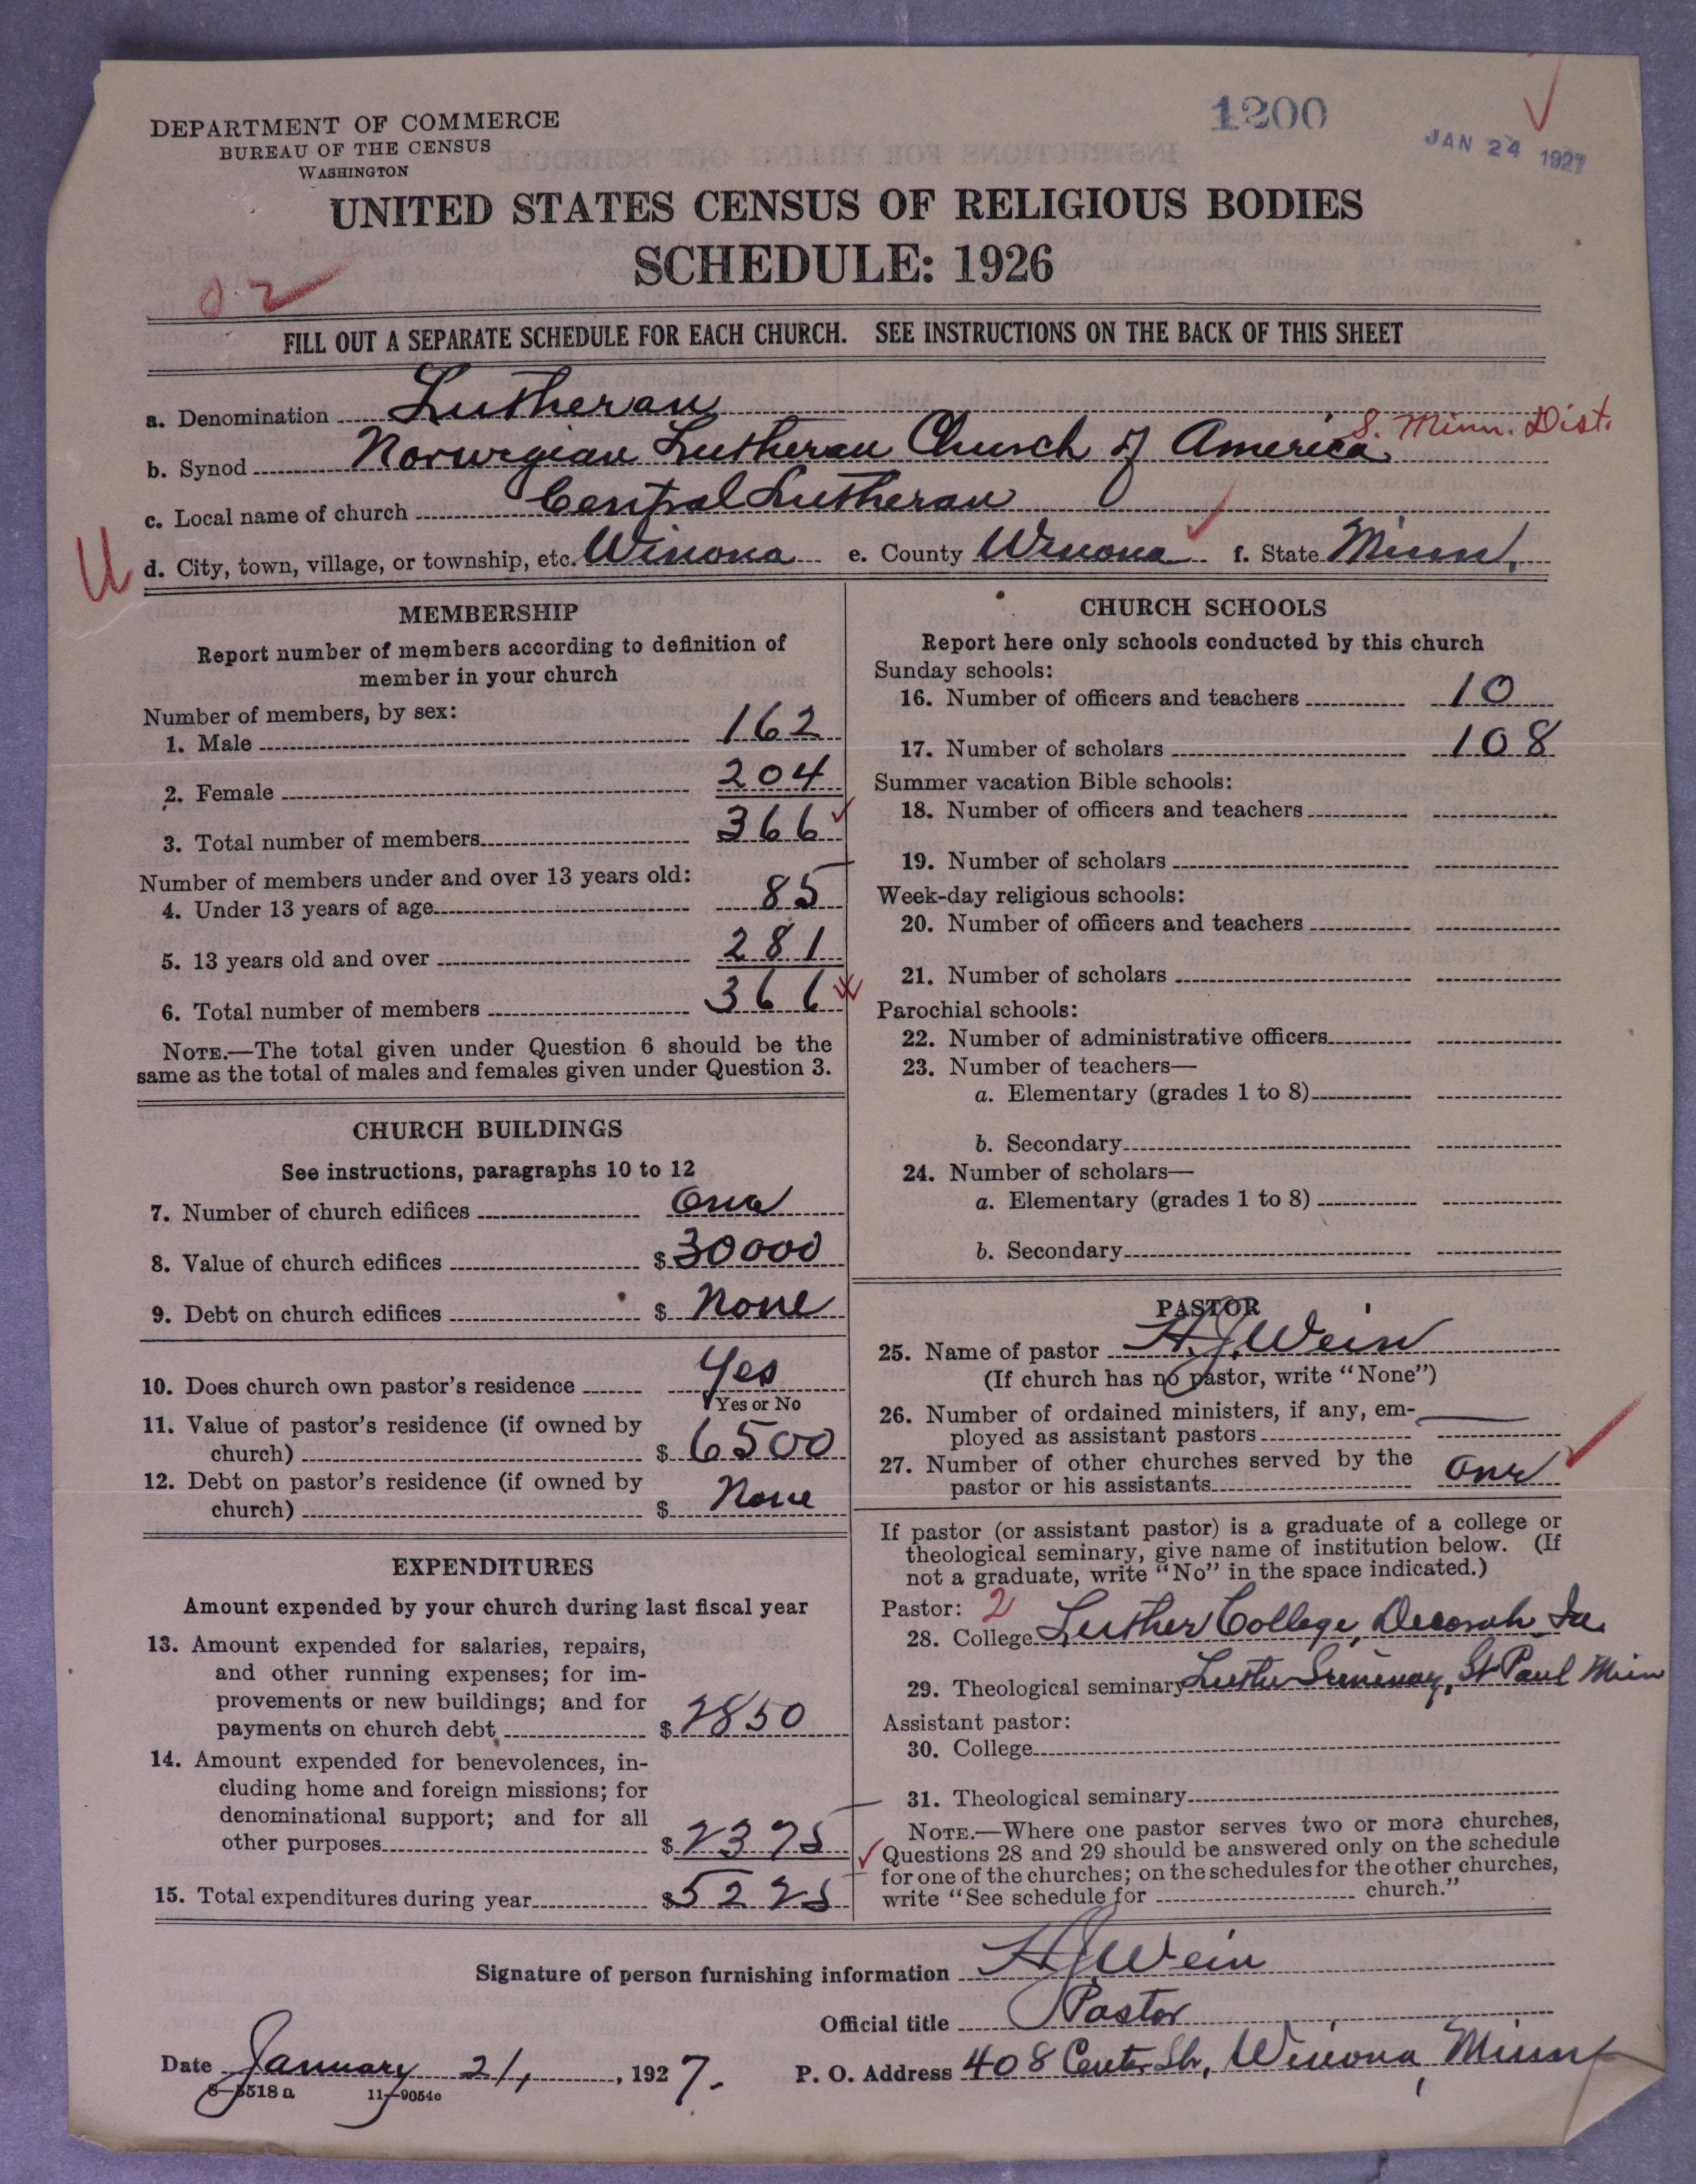 DEPARTMENT OF COMMERCE
BUREAU OF THE CENSUS
WASHINGTON
1200
JAN 24 1927
UNITED STATES CENSUS OF RELIGIOUS BODIES
SCHEDULE: 1926
02
FILL OUT A SEPARATE SCHEDULE FOR EACH CHURCH. SEE INSTRUCTIONS ON THE BACK OF THIS SHEET
a. Denomination Lutheran
S. Minn. Dist.
b. Synod Norwegian Lutheran Church of America
c. Local name of church Central Lutheran
U d. City, town, village, or township, etc. Winona e. County Winona f. State Minn.
MEMBERSHIP
Report number of members according to definition of
member in your church
Number of members, by sex:
1. Male 162
2. Female 204
3. Total number of members 366
Number of members under and over 13 years old:
4. Under 13 years of age 85
5. 13 years old and over 281
6. Total number of members 366
NOTE.—The total given under Question 6 should be the
same as the total of males and females given under Question 3.
CHURCH BUILDINGS
See instructions, paragraphs 10 to 12
7. Number of church edifices One
8. Value of church edifices $ 30000
9. Debt on church edifices $ None
10. Does church own pastor's residence Yes
Yes or No
11. Value of pastor's residence (if owned by
church) $ 6500
12. Debt on pastor's residence (if owned by
church) $ None
EXPENDITURES
Amount expended by your church during last fiscal year
13. Amount expended for salaries, repairs,
and other running expenses; for im-
provements or new buildings; and for
payments on church debt $ 2850
14. Amount expended for benevolences, in-
cluding home and foreign missions; for
denominational support; and for all
other purposes $ 2375
15. Total expenditures during year $ 5225
CHURCH SCHOOLS
Report here only schools conducted by this church
Sunday schools:
16. Number of officers and teachers 10
17. Number of scholars 108
Summer vacation Bible schools:
18. Number of officers and teachers
19. Number of scholars
Week-day religious schools:
20. Number of officers and teachers
21. Number of scholars
Parochial schools:
22. Number of administrative officers
23. Number of teachers—
a. Elementary (grades 1 to 8)
b. Secondary
24. Number of scholars—
a. Elementary (grades 1 to 8)
b. Secondary
PASTOR
25. Name of pastor H. J. Wein
(If church has no pastor, write "None")
26. Number of ordained ministers, if any, em-
ployed as assistant pastors
27. Number of other churches served by the
pastor or his assistants One
If pastor (or assistant pastor) is a graduate of a college or
theological seminary, give name of institution below. (If
not a graduate, write "No" in the space indicated.)
Pastor: 2
28. College Luther College, Decorah Ia.
29. Theological seminary Luther Seminary, St Paul Minn
Assistant pastor:
30. College
31. Theological seminary
NOTE.—Where one pastor serves two or more churches,
Questions 28 and 29 should be answered only on the schedule
for one of the churches; on the schedules for the other churches,
write "See schedule for church."
Signature of person furnishing information H J Wein
Official title Pastor
Date January 21, 1927. P. O. Address 408 Center Str, Winona, Minn
8—5518 a 11—9054c